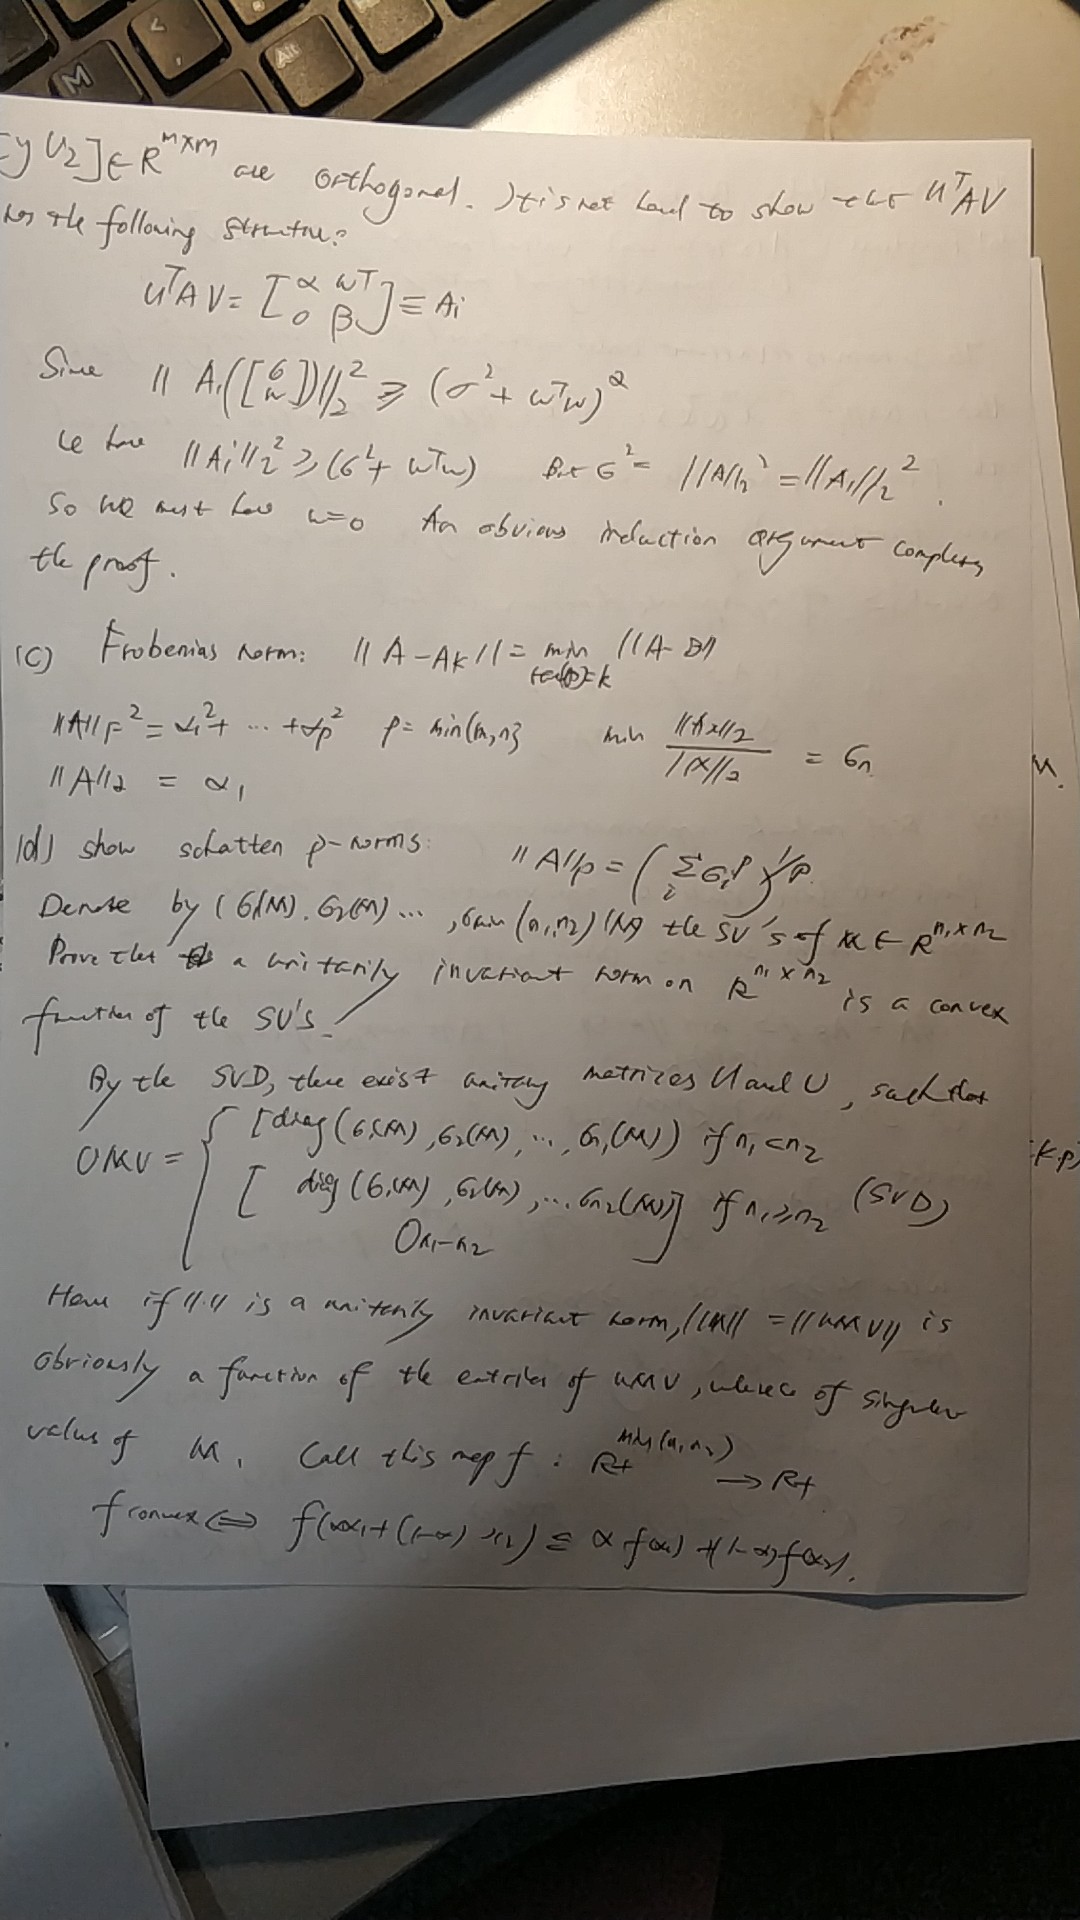 M
<
,
Alt
y U₂] ∈ R^{m×m} are orthogonal. It is not hard to show that U^T A V
has the following structure:
U^T A V = [α w^T; 0 β] ≡ A₁
Since ‖A₁([σ; w])‖₂² ≥ (σ² + w^T w)²
we have ‖A₁‖₂² ≥ (σ² + w^T w) But σ² = ‖A‖₂² = ‖A₁‖₂².
So we must have w=0 An obvious induction argument completes
the proof.
(c) Frobenias norm: ‖A - A_K‖ = min ‖A - B‖
rank(B)=k
‖A‖_F² = α₁² + ... + α_p² p = min{m,n} min ‖Ax‖₂ / ‖x‖₂ = σ_n
‖A‖₂ = α₁
(d) show schatten p-norms: ‖A‖_p = (Σ_i σ_i^p)^{1/p}.
Denote by (σ₁(M), σ₂(M) ..., σ_min(n₁,n₂)(M) the SV's of M ∈ R^{n₁×n₂}
Prove that a unitarily invariant norm on R^{n₁×n₂} is a convex
function of the SV's.
By the SVD, there exist unitary matrices U and V, such that
UMV = { [diag(σ₁(M), σ₂(M), ..., σ_{n₁}(M)) if n₁<n₂
[ diag(σ₁(M), σ₂(M), ... σ_{n₂}(M)) ] if n₁≥n₂ (SVD)
O_{n₁-n₂}
Hence if ‖·‖ is a unitarily invariant norm, ‖M‖ = ‖UMV‖ is
obviously a function of the entries of UMV, whence of singular
values of M. Call this map f : R+^{min(n₁,n₂)} → R+
f convex ⇔ f(αx₁+(1-α)x₂) ≤ αf(x₁)+(1-α)f(x₂).
k.p)